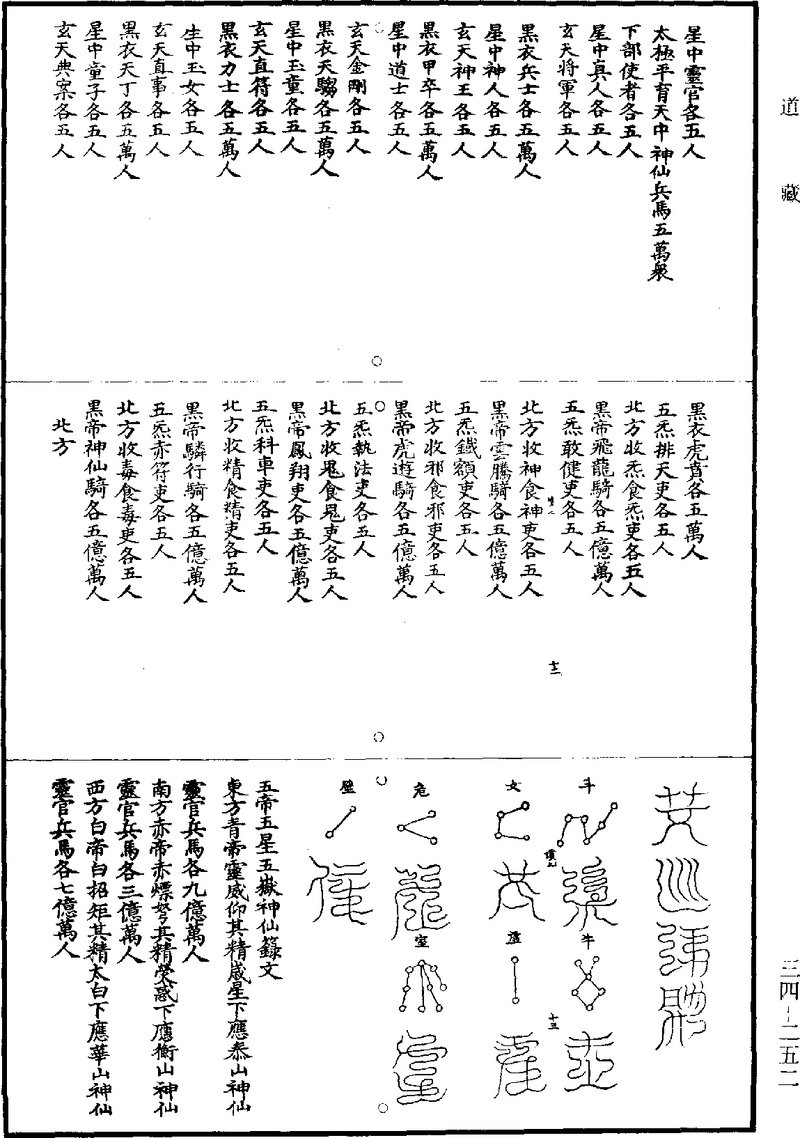 道藏
三四-二五二
星中靈官各五人
太極平育天中神仙兵馬五萬衆
下部使者各五人
星中真人各五人
玄天將軍各五人
黑衣兵士各五萬人
星中神人各五人
玄天神王各五人
黑衣甲卒各五萬人
星中道士各五人
玄天金剛各五人
黑衣天騶各五萬人
星中玉童各五人
玄天直符各五人
黑衣力士各五萬人
生中玉女各五人
玄天直事各五人
黑衣天丁各五萬人
星中童子各五人
玄天典案各五人
黑衣虎賁各五萬人
五炁排天吏各五人
北方收炁食炁吏各五人
黑帝飛龍騎各五億萬人
五炁敢健吏各五人
北方收神食神吏各五人
黑帝雲騰騎各五億萬人
五炁鐵額吏各五人
北方收邪食邪吏各五人
黑帝虎遊騎各五億萬人
五炁執法吏各五人
北方收鬼食鬼吏各五人
黑帝鳳翔騎各五億萬人
五炁科車吏各五人
北方收精食精吏各五人
黑帝驎行騎各五億萬人
五炁赤符吏各五人
北方收毒食毒吏各五人
黑帝神仙騎各五億萬人
北方
十二
斗
牛
女
虛
危
室
壁
十三
五帝五星五嶽神仙籙文
東方青帝靈威仰其精歲星下應泰山神仙
靈官兵馬各九億萬人
南方赤帝赤熛弩其精熒惑下應衡山神仙
靈官兵馬各三億萬人
西方白帝白招矩其精太白下應華山神仙
靈官兵馬各七億萬人